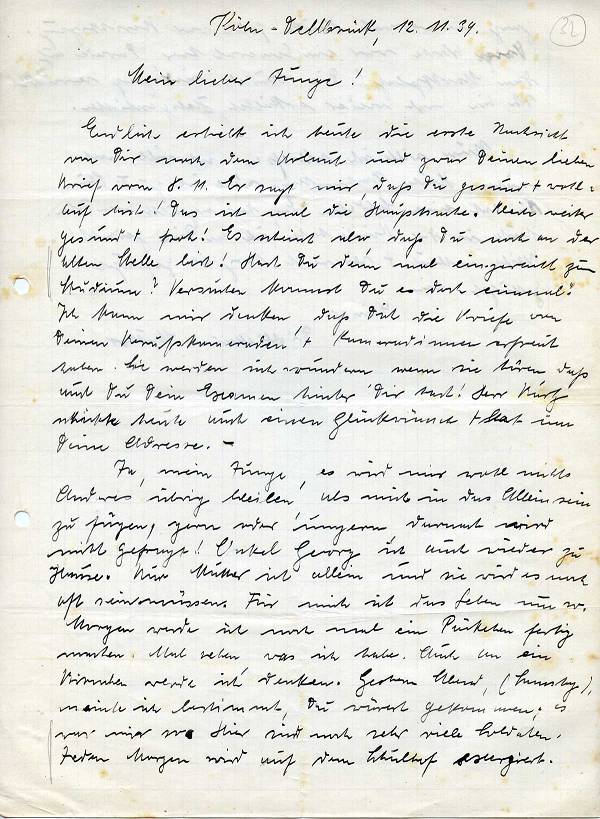 32
Köln-Dellbrück, 12.11.39.
Mein lieber Junge!
Endlich erhielt ich heute die erste Nachricht
von Dir nach dem Urlaub und zwar Deinen lieben
Brief vom 8.11. Er sagt mir, daß Du gesund + wohl-
auf bist! Das ist mal die Hauptsache. Bleib weiter
gesund + froh! Es scheint also daß Du noch an der
alten Stelle bist! Hast Du denn mal eingereicht zum
Studium? Versuchen kannst Du es doch einmal!
Ich kann mir denken daß Dich die Briefe von
Deinen Berufskameraden + Kameradinnen erfreut
haben. Sie werden sich wundern wenn sie hören daß
auch Du Dein Examen hinter Dir hast! Herr
schickte heute auch einen Glückwunsch + bat um
Deine Adresse. -
Ja, mein Junge, es wird mir wohl nichts
Anderes übrig bleiben, als mich in das Alleinsein
zu fügen, gern oder ungern danach wird
nicht gefragt! Onkel Georg ist auch wieder zu
Hause. Nur Mutter ist allein und sie wird es noch
oft sein müssen. Für mich ist das Leben nun so.
Morgen werde ich noch mal ein Päckchen fertig
machen. Mal sehen, was ich habe. Auch an ein
werde ich denken. Gestern Abend, (Samstag),
meinte ich bestimmt, Du wärest gekommen; es
war mir so. Hier sind noch sehr viele Soldaten.
Jeden Morgen wird auf dem Schulhof exerziert.